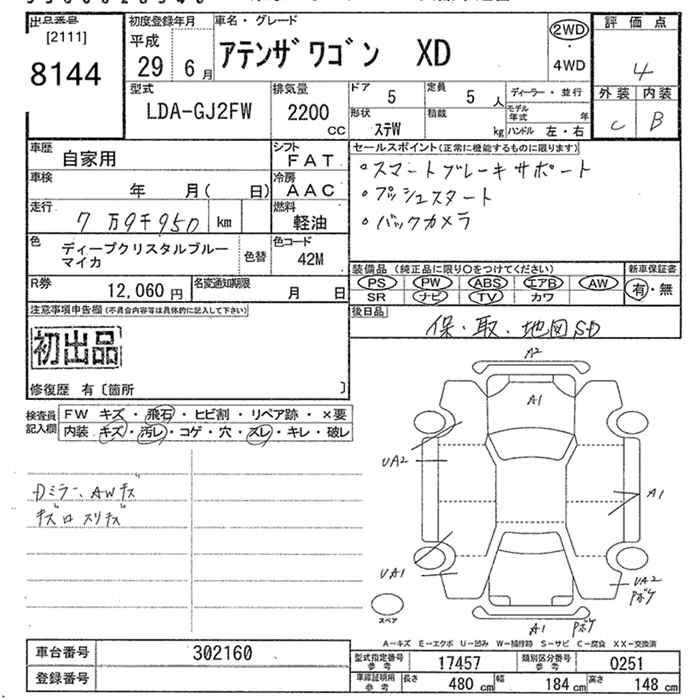 出品番号 初度登録年月 車名・グレード 評価点
[2111] 平成 アテンザワゴン XD 2WD
8144 29年 6月 4WD 4
型式 排気量 ドア 5 定員 5人 ディーラー・並行 外装 内装
LDA-GJ2FW 2200CC 形状 ステW 積載 kg モデル年式 年 C B
ハンドル 左・右
車歴 自家用 シフト FAT セールスポイント(正常に機能するものに限ります)
車検 年 月( 日) 冷房 AAC ・スマートブレーキサポート
走行 7万9千950 km 燃料 軽油 ・プッシュスタート
・バックカメラ
色 ディープクリスタルブルーマイカ 色替 色コード 42M
装備品(純正品に限り○をつけてください) 新車保証書
PS PW ABS エアB AW 有・無
R券 12,060円 名変通知期限 月 日 SR ナビ TV カワ
注意事項申告欄(不具合内容等は具体的に記入して下さい) 後日品
保・取・地図SD
初出品
修復歴 有〔箇所 〕
検査員記入欄 FW キズ・飛石・ヒビ割・リペア跡・×要
内装 キズ・汚レ・コゲ・穴・スレ・キレ・破レ
A2
A1
UA2
A1
Dミラー、AWキズ
キズロ スリキズ
UA1
UA2
Pボケ
スペア
A1 Pボケ
A-キズ E-エクボ U-凹み W-補修跡 S-サビ C-腐食 XX-交換済
車台番号 302160 型式指定番号 参考 17457 類別区分番号 参考 0251
登録番号 車庫証明用 参考 長さ 480cm 幅 184cm 高さ 148cm